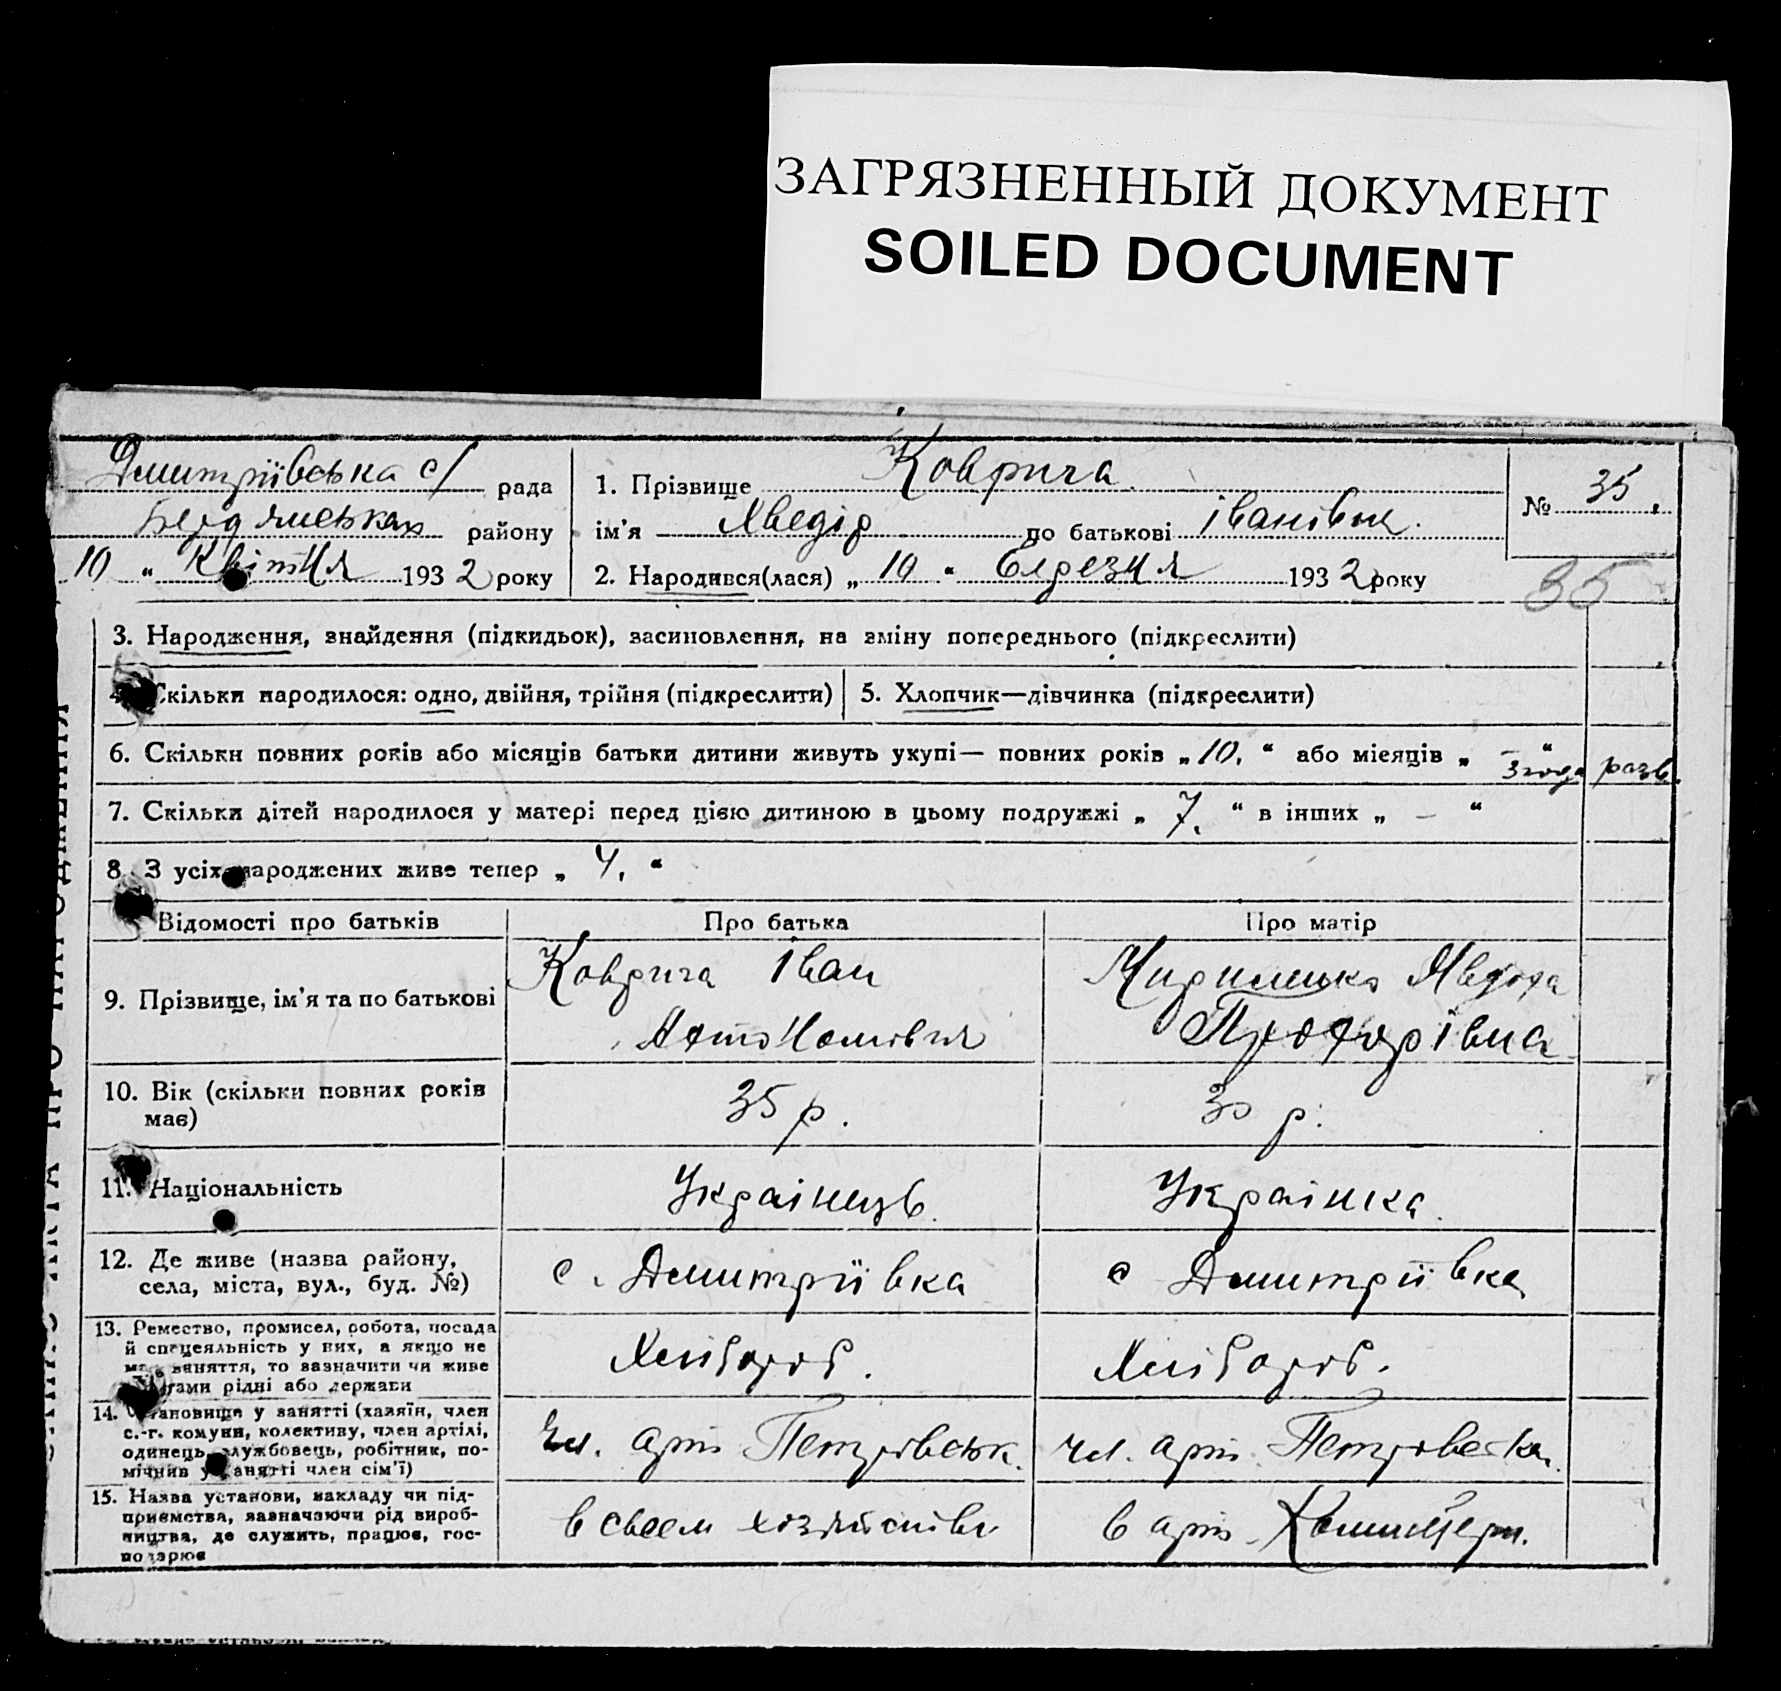 ЗАГРЯЗНЕННЫЙ ДОКУМЕНТ
SOILED DOCUMENT
Дмитріївська с/ рада
Бердянськах району
10 " Квітня 1932 року
1. Прізвище Коврига
ім'я Хведір по батькові івановыч.
2. Народився(лася) „ 10 " березня 1932 року
№ 35.
35
3. Народження, знайдення (підкидьок), засиновлення, на зміну попереднього (підкреслити)
4. Скільки народилося: одно, двійня, трійня (підкреслити)
5. Хлопчик—дівчинка (підкреслити)
6. Скільки повних років або місяців батьки дитини живуть укупі— повних років „ 10. " або місяців „ — "
3 года разв.
7. Скільки дітей народилося у матері перед цією дитиною в цьому подружжі „ 7. " в інших „ — "
8. З усіх народжених живе тепер „ 4. "
Відомості про батьків Про батька Про матір
9. Прізвище, ім'я та по батькові
Коврига іван
Автономович
Явдоха
Прохорівна
10. Вік (скільки повних років
має)
35 р.
30 р.
11. Національність
Українець.
Українка.
12. Де живе (назва району,
села, міста, вул., буд. №)
с. Дмитріївка
с Дмитріївка
13. Ремество, промисел, робота, посада
й спецеяльність у них, а якщо не
має заняття, то зазначити чи живе
рідні або держави
Хлібороб.
Хлібороб.
14. Становище у занятті (хазяїн, член
с.-г. комуни, колективу, член артілі,
одинець, службовець, робітник, по-
мічнив у занятті член сім'ї)
чл. арт Петровськ.
чл. арт. Петровська.
15. Назва установи, закладу чи під-
приємства, зазначаючи рід вироб-
ництва, де служить, працює, гос-
подарює
в своем хозяйстві
в арт.